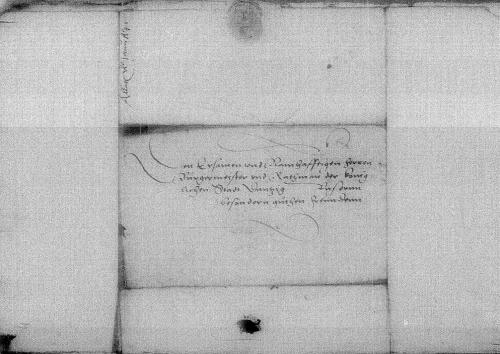 en Ersamen vnd Namhafftigen Herren
Burgermeister vnd Rathman der König
lichen Stadt Dantzig Vnsernn
besondern guthen freundenn